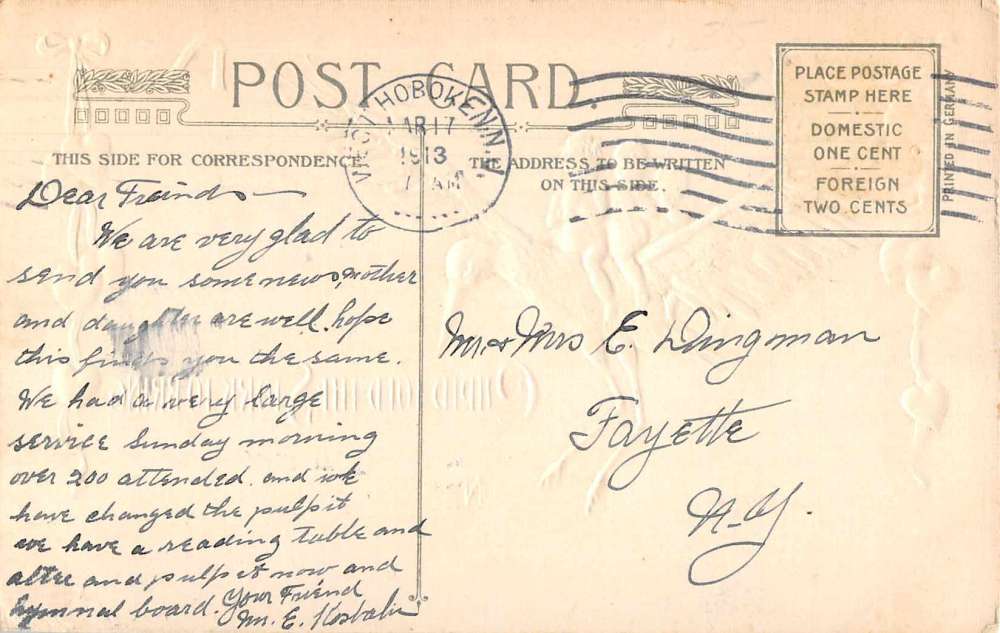 POST CARD.
THIS SIDE FOR CORRESPONDENCE
THE ADDRESS TO BE WRITTEN
ON THIS SIDE.
WEST HOBOKEN, N.J.
MAR 17
1913
AM
PLACE POSTAGE
STAMP HERE
DOMESTIC
ONE CENT
FOREIGN
TWO CENTS
PRINTED IN GERMANY
Dear Freinds
We are very glad to
send you some news, mother
and daughter are well. hope
this finds you the same.
We had a very large
service Sunday morning
over 200 attended. and we
have changed the pulpit
we have a reading table and
alter and pulpit now and
hymnal board. Your Friend
M. E.
Mr & Mrs E. Dingman
Fayette
N-Y.